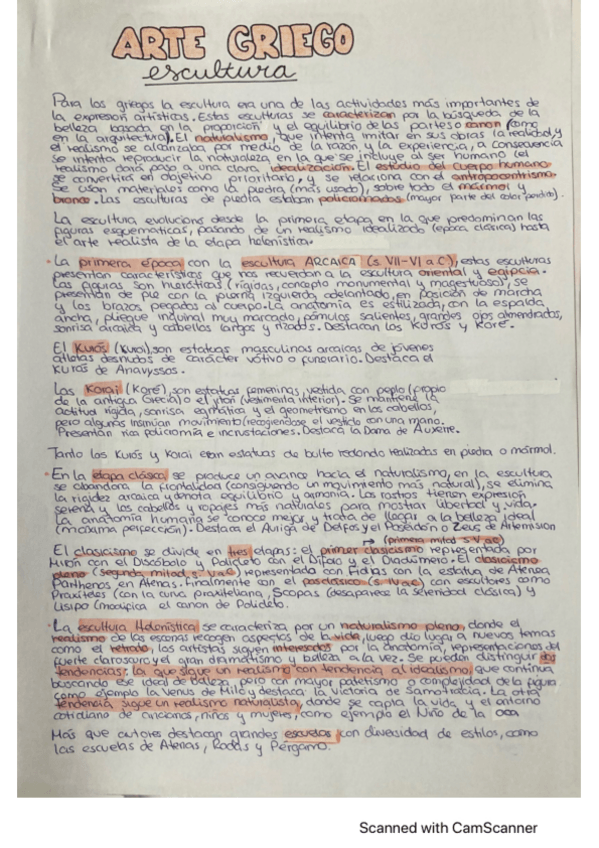 ARTE GRIEGO
escultura
Para los griegos la escultura era una de las actividades más importantes de
la expresion artísticas. Estas esculturas se caracterizan por la búsqueda de la
belleza basada en la proporción y el equilibrio de las partes o canon (como
en la arquitectura). El naturalismo, que intenta imitar en sus obras la realidad, y
el realismo se alcanzaba por medio de la razón, y la experiencia, a consecuencia
se intenta reproducir la naturaleza, en la que se incluye al ser humano (el
realismo dará paso a una clara idealización. El estudio del cuerpo humano
se convertirá en objetivo prioritario, y se relaciona con el antropocentrismo.
Se usan materiales como la piedra (más usado), sobre todo el mármol y
bronce. Las esculturas de piedra estaban policromadas (mayor parte del color perdido).
La escultura evoluciona desde la primera etapa en la que predominan las
figuras esquematicas, pasando de un realismo idealizado (epoca clásica) hasta
el arte realista de la etapa helenistica.
· La primera época con la escultura ARCAICA (s. VII-VI a.C), estas esculturas
presentan características que nos recuerdan a la escultura oriental y egipcia.
Las figuras son hieráticas (rígidas, concepto monumental y magestuoso), se
presentan de pie con la pierna izquierda adelantada, en posición de marcha
y los brazos pegados al cuerpo. La anatomía es estilizada, con la espalda
ancha, pliegue inguinal muy marcado, pómulos salientes, grandes ojos almendrados,
sonrisa arcaica y cabellos largos y rizados. Destacan los Kurós y Koré.
El Kurós (Kuroi), son estatuas masculinas arcaicas de jóvenes
atletas desnudos de carácter votivo o funerario. Destaca el
Kurós de Anavyssos.
Las Korai (Koré), son estatuas femeninas, vestida con peplo (propio
de la antigua Grecia) o el yitón (vestimenta interior). Se mantiene la
actitud rígida, sonrisa egmática y el geometrismo en los cabellos,
pero algunas insinúan movimiento (recogiendose el vestido con una mano.
Presentan rica policromía e incrustaciones. Destaca la Dama de Auxerre.
Tanto los Kurós y Korai eran estatuas de bulto redondo realizadas en piedra o mármol.
· En la etapa clásica se produce un avance hacia el naturalismo, en la escultura
se abandona la frontalidad (consiguiendo un movimiento más natural), se elimina
la rigidez arcaica y denota equilibrio y armonía. Los rostros tienen expresión
serena y los cabellos y ropajes más naturales para mostrar libertad y vida.
La anatomía humana se conoce mejor, y trata de llegar a la belleza ideal
(máxima perfección). Destaca el Auriga de Delfos y el Poseidón o Zeus de Artemision
→ (primera mitad s. V a.C)
El clasicismo se divide en tres etapas: el primer clasicismo representada por
Mirón con el Discóbolo y Policleto con el Diforo y el Diadúmero. El clasicismo
pleno (segunda mitad s. V a.C) representada con Fidias con la estatua de Atenea
Parthenos en Atenas. Finalmente con el posclásico (s. IV a.C) con escultores como
Praxiteles (con la curva praxiteliana, Scopas (desaparece la serenidad clásica) y
Lisipo (modifica el canon de Policleto).
· La escultura Helenística se caracteriza por un naturalismo pleno, donde el
realismo de las escenas recogen aspectos de la vida, luego dio lugar a nuevos temas
como el retrato, los artistas siguen interesados por la anatomía, representaciones del
fuerte claroscuro y el gran dramatismo y belleza a la vez. Se pueden distinguir dos
tendencias: la que sigue un realismo con tendencia al idealismo que continua
buscando ese ideal de belleza, pero con mayor patetismo o complejidad de la figura
como ejemplo la Venus de Milo y destaca la Victoria de Samotracia. La otra
tendencia sigue un realismo naturalista, donde se capta la vida y el entorno
cotidiano de ancianos, niños y mujeres, como ejemplo el Niño de la oca
Más que autores destacan grandes escuelas con diversidad de estilos, como
las escuelas de Atenas, Rodas y Pérgamo.
Scanned with CamScanner